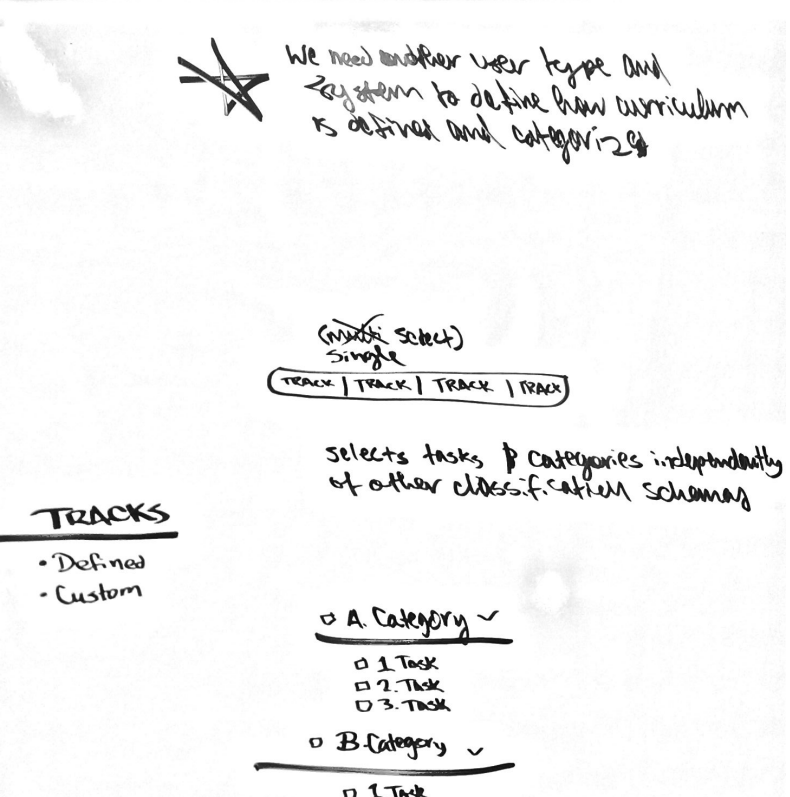 We need another user type and
system to define how curriculum
is defined and categorized
(multi select)
single
TRACK | TRACK | TRACK | TRACK
selects tasks & categories independently
of other classification schemas
TRACKS
• Defined
• Custom
A. Category
1 Task
2. Task
3. Task
B. Category
1 Task